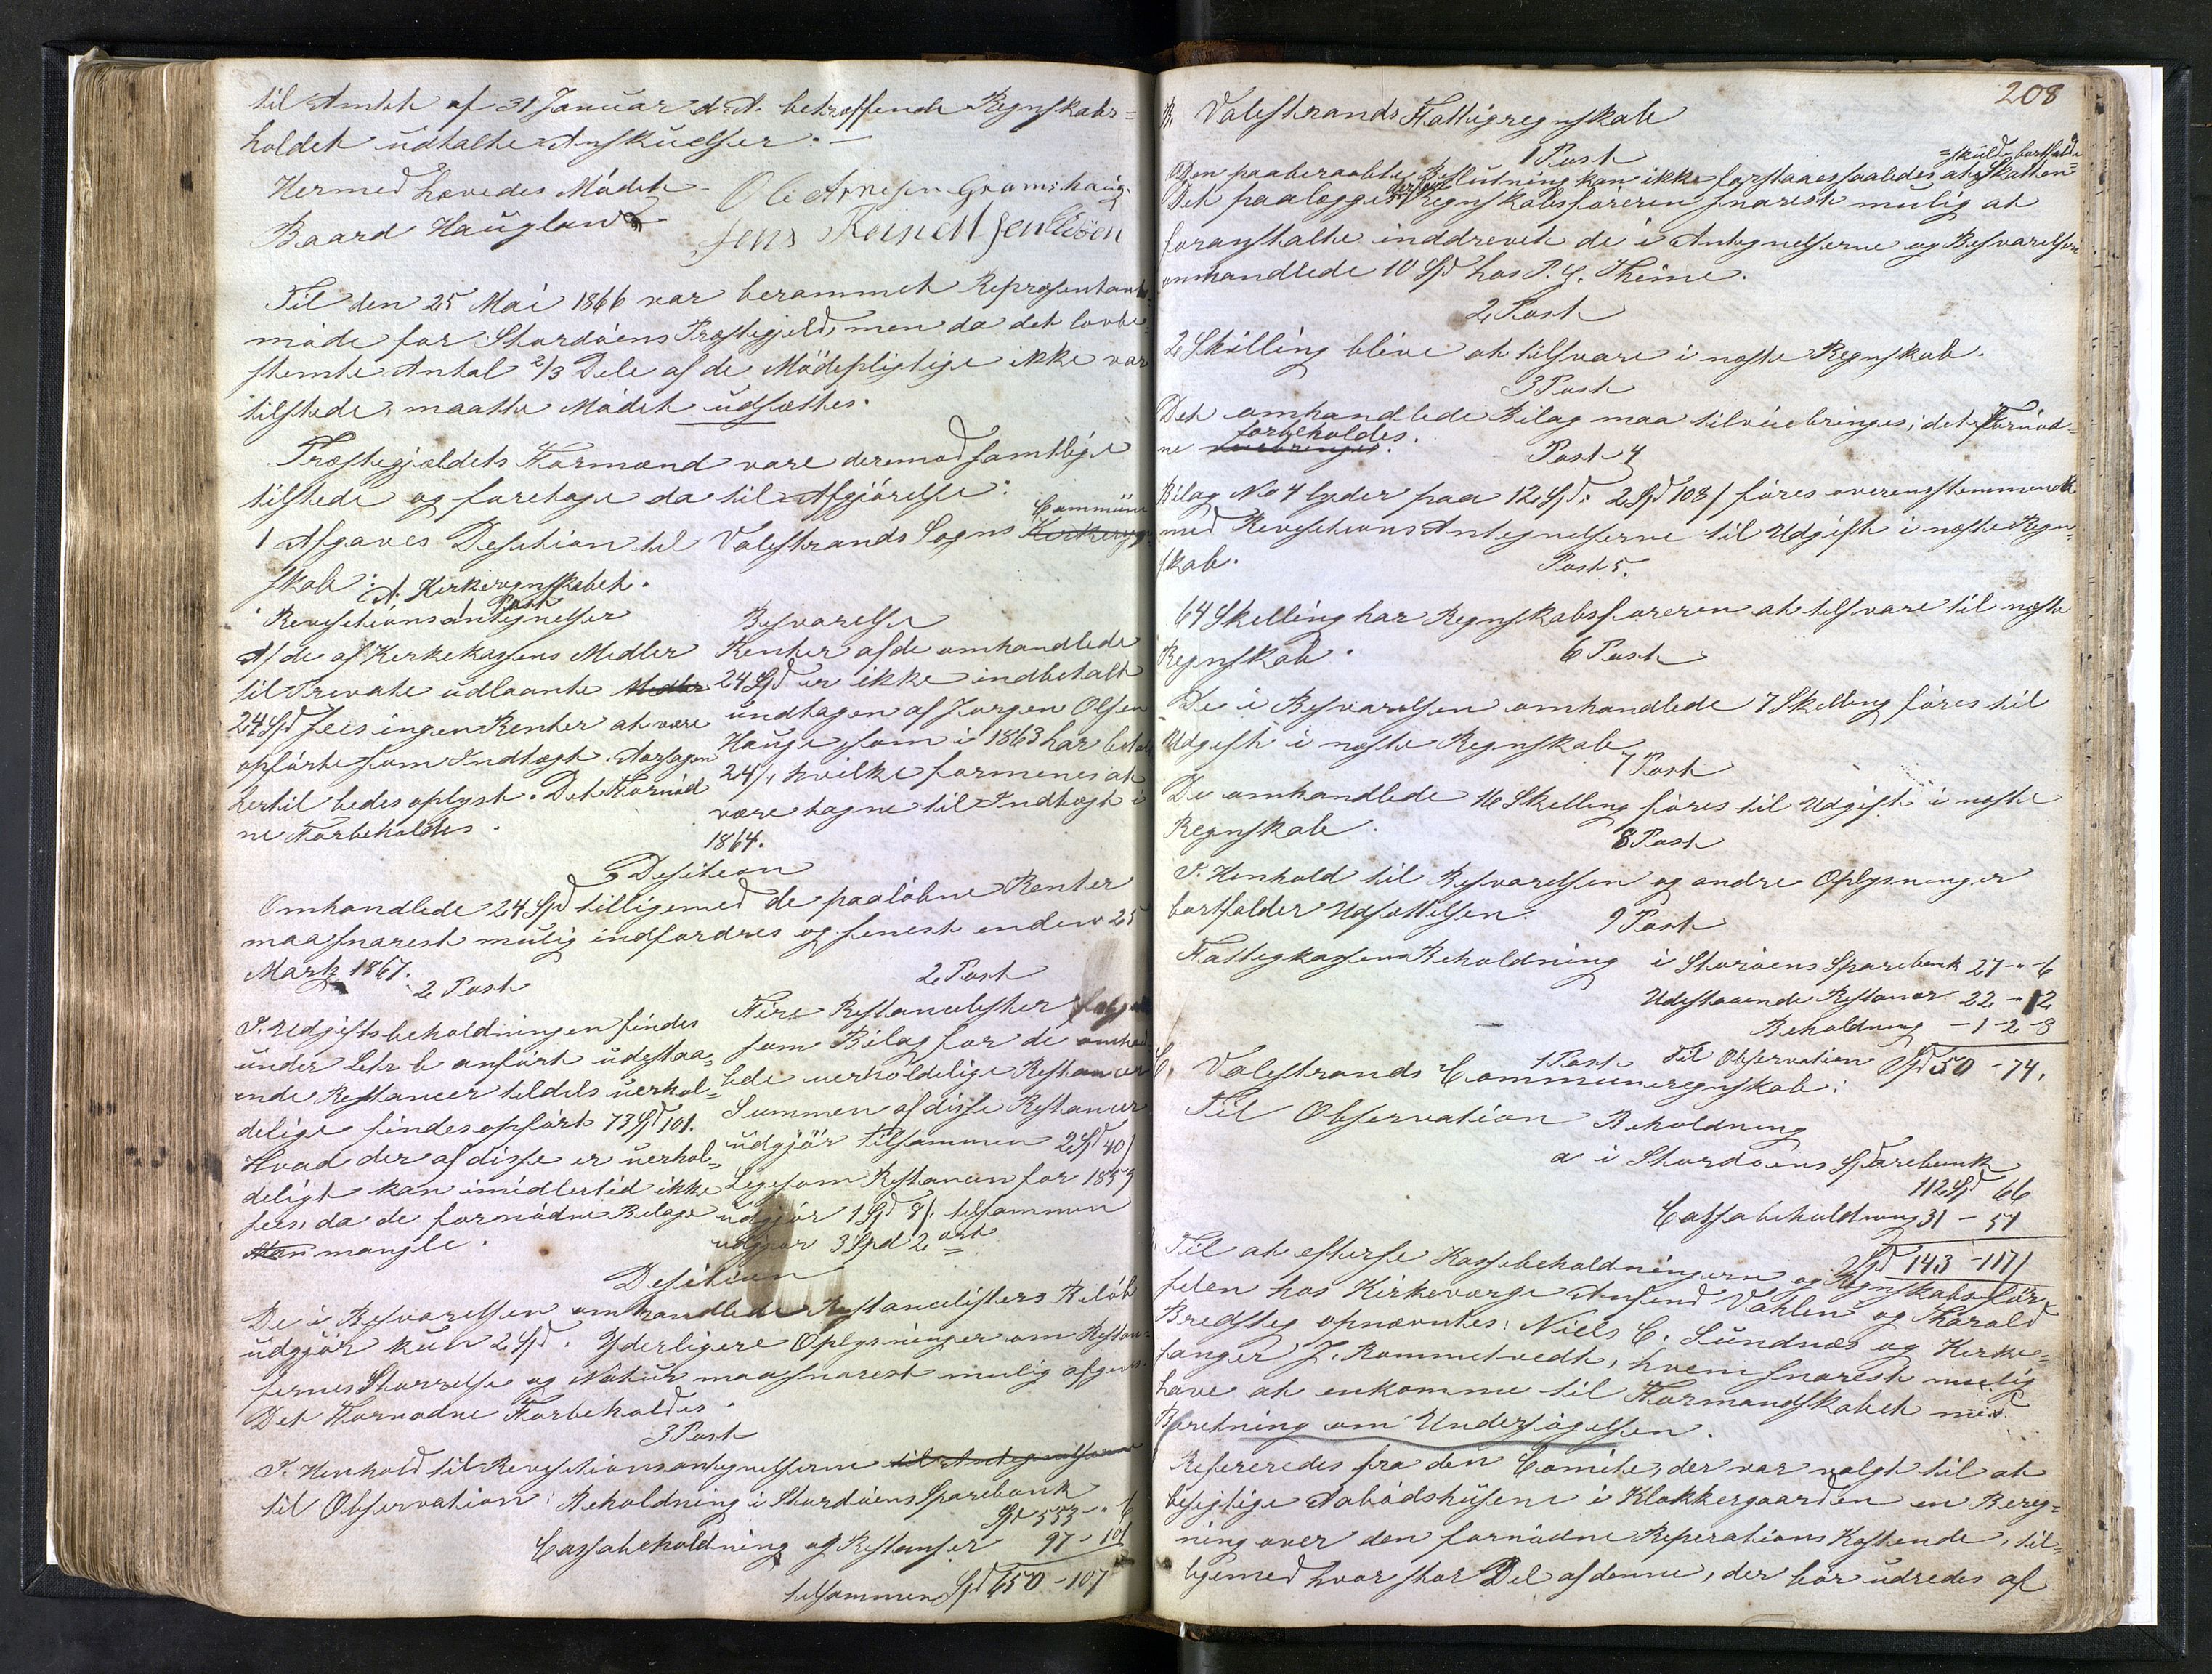 til Amtet af 31 Januar d. A. betræffende Regnskabs=
holdet udtalte Anskuelser. —
Hermed hævedes Mødet.
Ole Arnesen Gramshaug
Baard Hauglan
Jens Reinertsen Eidøen
Til den 25 Mai 1866 var berammet Repræsentant
møde for Stordøens Præstegjeld, men da det lovbe=
stemte Antal 2/3 Dele af de Mødepligtige ikke var
tilstede, maatte Mødet udsættes.
Præstegjældets Formænd vare deremod samtlige
tilstede og foretoge da til Afgjørelse:
Commune
1 Afgaves Desition til Valestrands Sogns Kirkeregn
skab: A. Kirkeregnskabet.
1 Post
Revisitionsantegnelser
Af de af Kirkekassens Medler
til Private udlaante Medler
24 Spd sees ingen Renter at være
opførte som Indtægt. Aarsagen
hertil bedes oplyst. Det Fornød
ne Forbeholdes.
Besvarelse
Renter af de omhandlede
24 Spd er ikke indbetalt
undtagen af Jørgen Olsen
Hauge, som i 1863 har betalt
24 /, hvilke formenes at
være tagne til Indtægt i
1864.
Desition
Omhandlede 24 Spd tilligemed de paaløbne Renter
maa snarest mulig indfordres og senest enden 25
Marts 1867.
2 Post
I Udgiftsbeholdningen findes
under Litr b anført udestaa=
ende Restancer tildels uerhol=
delige findes opført 73 Spd 101.
Hvad der af disse er uerhol=
deligt kan imidlertid ikke
sees, da de fornødne Bilage
mangle.
2 Post
Fire Restancelister følger
som Bilag for de omhand
lede uerholdelige Restancer
Summen af disse Restancer
udgjør tilsammen 2 Spd 40 /
Ligesom Restancen for 1859
udgjør 1 Spd 8 /. tilsammen
udgjør 3 Spd 2 ort
Desition
De i Besvarelsen omhandlede Restancelisters Beløb
udgjør kun 2 Spd. Yderligere Oplysninger om Restan=
sernes Størrelse og Natur maa snarest mulig afgives.
Det Fornødne Forbeholdes.
3 Post
I Henhold til Revisitionsantegnelserne til Antegnelserne
til Observation: Beholdning i Stordøens Sparebank
Spd 553 - " 6
Cassabeholdning og Restanser 97 - 101
tilsammen Spd 650 - 107
208
B. Valestrands Fattigregnskab
1 Post
=skulde bortfalde=
Den paaberaabte Beslutning kan ikke forstaaes saaledes at Skatten
derfor
Det paalægges Regnskabsføreren snarest mulig at
foranstalte inddrevet de i Antegnelserne og Besvarelsen
omhandlede 10 Spd hos P. G. Theine.
2 Post
2 Skilling blive at tilsvare i næste Regnskab.
3 Post
Det omhandlede Bilag maa tilveiebringes; det Fornød=
forbeholdes.
ne
Post 4
Bilag No 4 lyder paa 12 Spd. 2 Spd 108 / føres overensstemmende
med Revisitions Antegnelserne til Udgift i næste Regn=
skab.
Post 5.
64 Skelling har Regnskabsføreren at tilsvare til næste
Regnskab.
6 Post
De i Besvarelsen omhandlede 7 Skelling føres til
Udgift i næste Regnskab
7 Post
De omhandlede 16 Skelling føres til Udgift i næste
Regnskab.
8 Post
I Henhold til Besvarelsen og andre Oplysninger
bortfalder Udsættelsen.
9 Post
Fattigkassens Beholdning i Storøens Sparebank 27 - " - 6
Udestaaende Restancer 22 - " 12
Beholdning - 1 - 2 - 8
Til Observation Spd 50 - 74.
C. Valestrands Communeregnskab:
1 Post
Til Observation Beholdning
a i Stordøens Sparebank
112 Spd 66
Cassabeholdning 31 - 51
Spd 143 - 117 /
Til at efterse Kassebeholdningern og Regnskabsfør=
selen hos Kirkeværge Amund Vahlen og Harald
Bredsteg opnævntes: Niels C. Sundnæs og Kirke=
sanger J. Rommetvedt, hvem snarest mulig
have at enkomme til Formandskabet med
Beretning om Undersøgelsen.
Refereredes fra den Comite, der var valgt til at
besigtige Aabødshusene i Klokkergaarden en Bereg=
ning over den fornødne Reperations Kostende, til=
ligemed hvor stor Del af denne, der bør udredes af